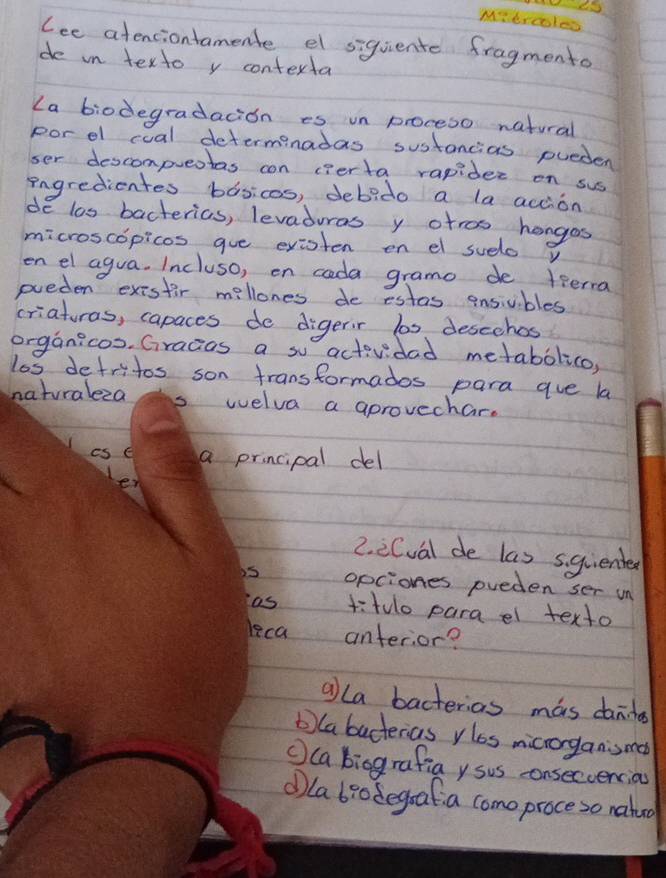 25
Miércoles
Lee atenciontamente el siguiente fragmento
de un texto y contexta
La biodegradación es un proceso natural
por el cual determinadas sustancias pueden
ser descompuestas con cierta rapidez en sus
ingredientes básicos, debido a la acción
de las bacterias, levaduras y otros hongos
microscópicos que existen en el suelo y
en el agua. Incluso, en cada gramo de tierra
pueden existir millones de estas insivibles
criaturas, capaces de digerir los desechos
orgánicos. Gracias a su actividad metabólico,
los detritos son transformados para que la
naturaleza s vuelva a aprovechar.
es e a principal del
2. ¿Cuál de las siguientes
opciones pueden ser un
título para el texto
anterior?
a) La bacterias más
b) La bacterias y los microrganismos
c) La biografía y sus consecuencias
d) La biodegrafia como proceso natural